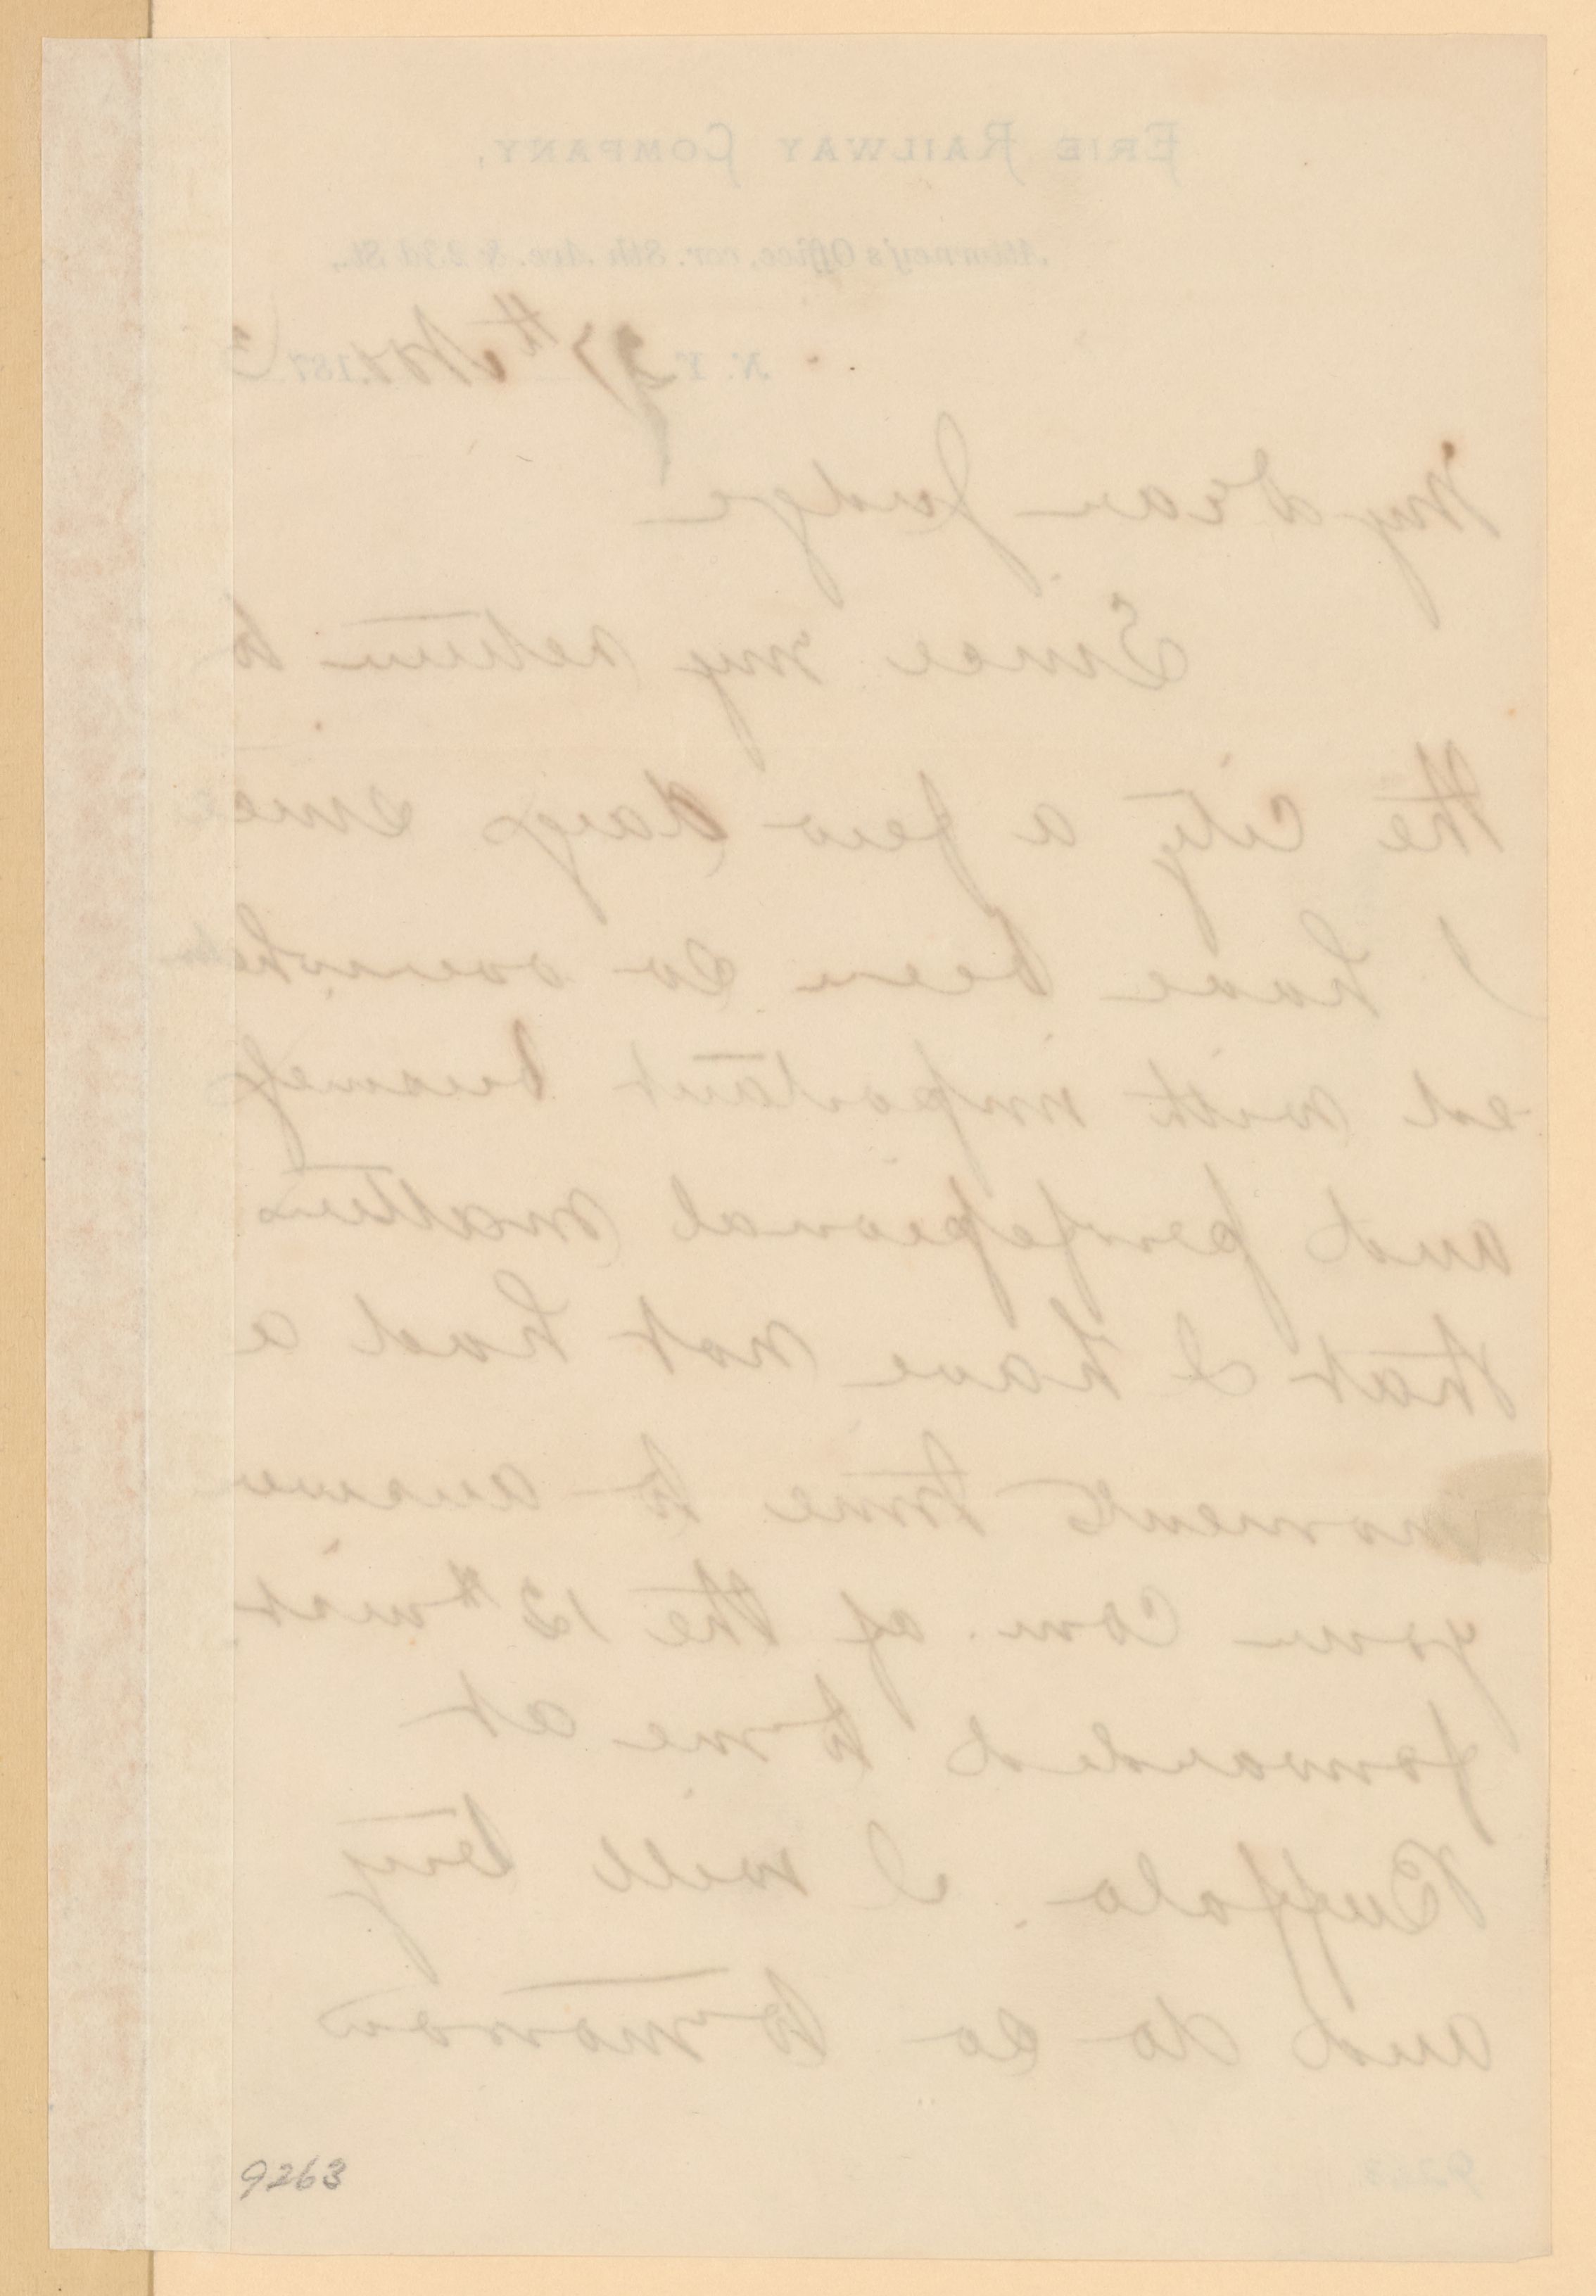 ERIE RAILWAY COMPANY,
Attorney's Office, cor. 8th Ave. & 23d St.,
N. Y. 27th Nov. 1873
My dear Judge
Since my return to
the city a few days since
I have been so overwhelm
ed with important business
and professional matters
that I have not had a
moments time to answer
your Com. of the 12th inst.
forwarded to me at
Buffalo. I will try
and do so tomorrow
9263